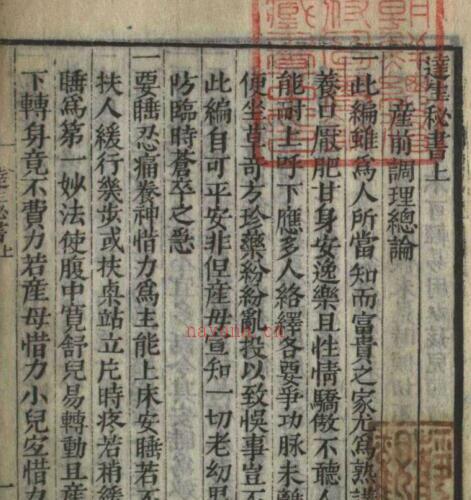 達生秘書上
產前調理總論
一此編雖爲人所當知而富貴之家尤爲熟講
養日厭肥甘身安逸樂且性情驕傲不聽人
能耐上呼下應多人絡繹各要爭功脉未離
便坐草竒方珍藥紛紛亂投以致悞事豈不
此編自可平安非但產母宣知一切老幼男
臨時蒼卒之患
一要睡忍痛養神惜力爲主能上床安睡若不
扶人緩行幾步或扶桌站立片時疼若稍緩
睡爲第一妙法使腹中寬舒兒易轉動且產
下轉身竟不費力若產母惜力小兒宐惜力
達生秘書上
一
nayona.cn